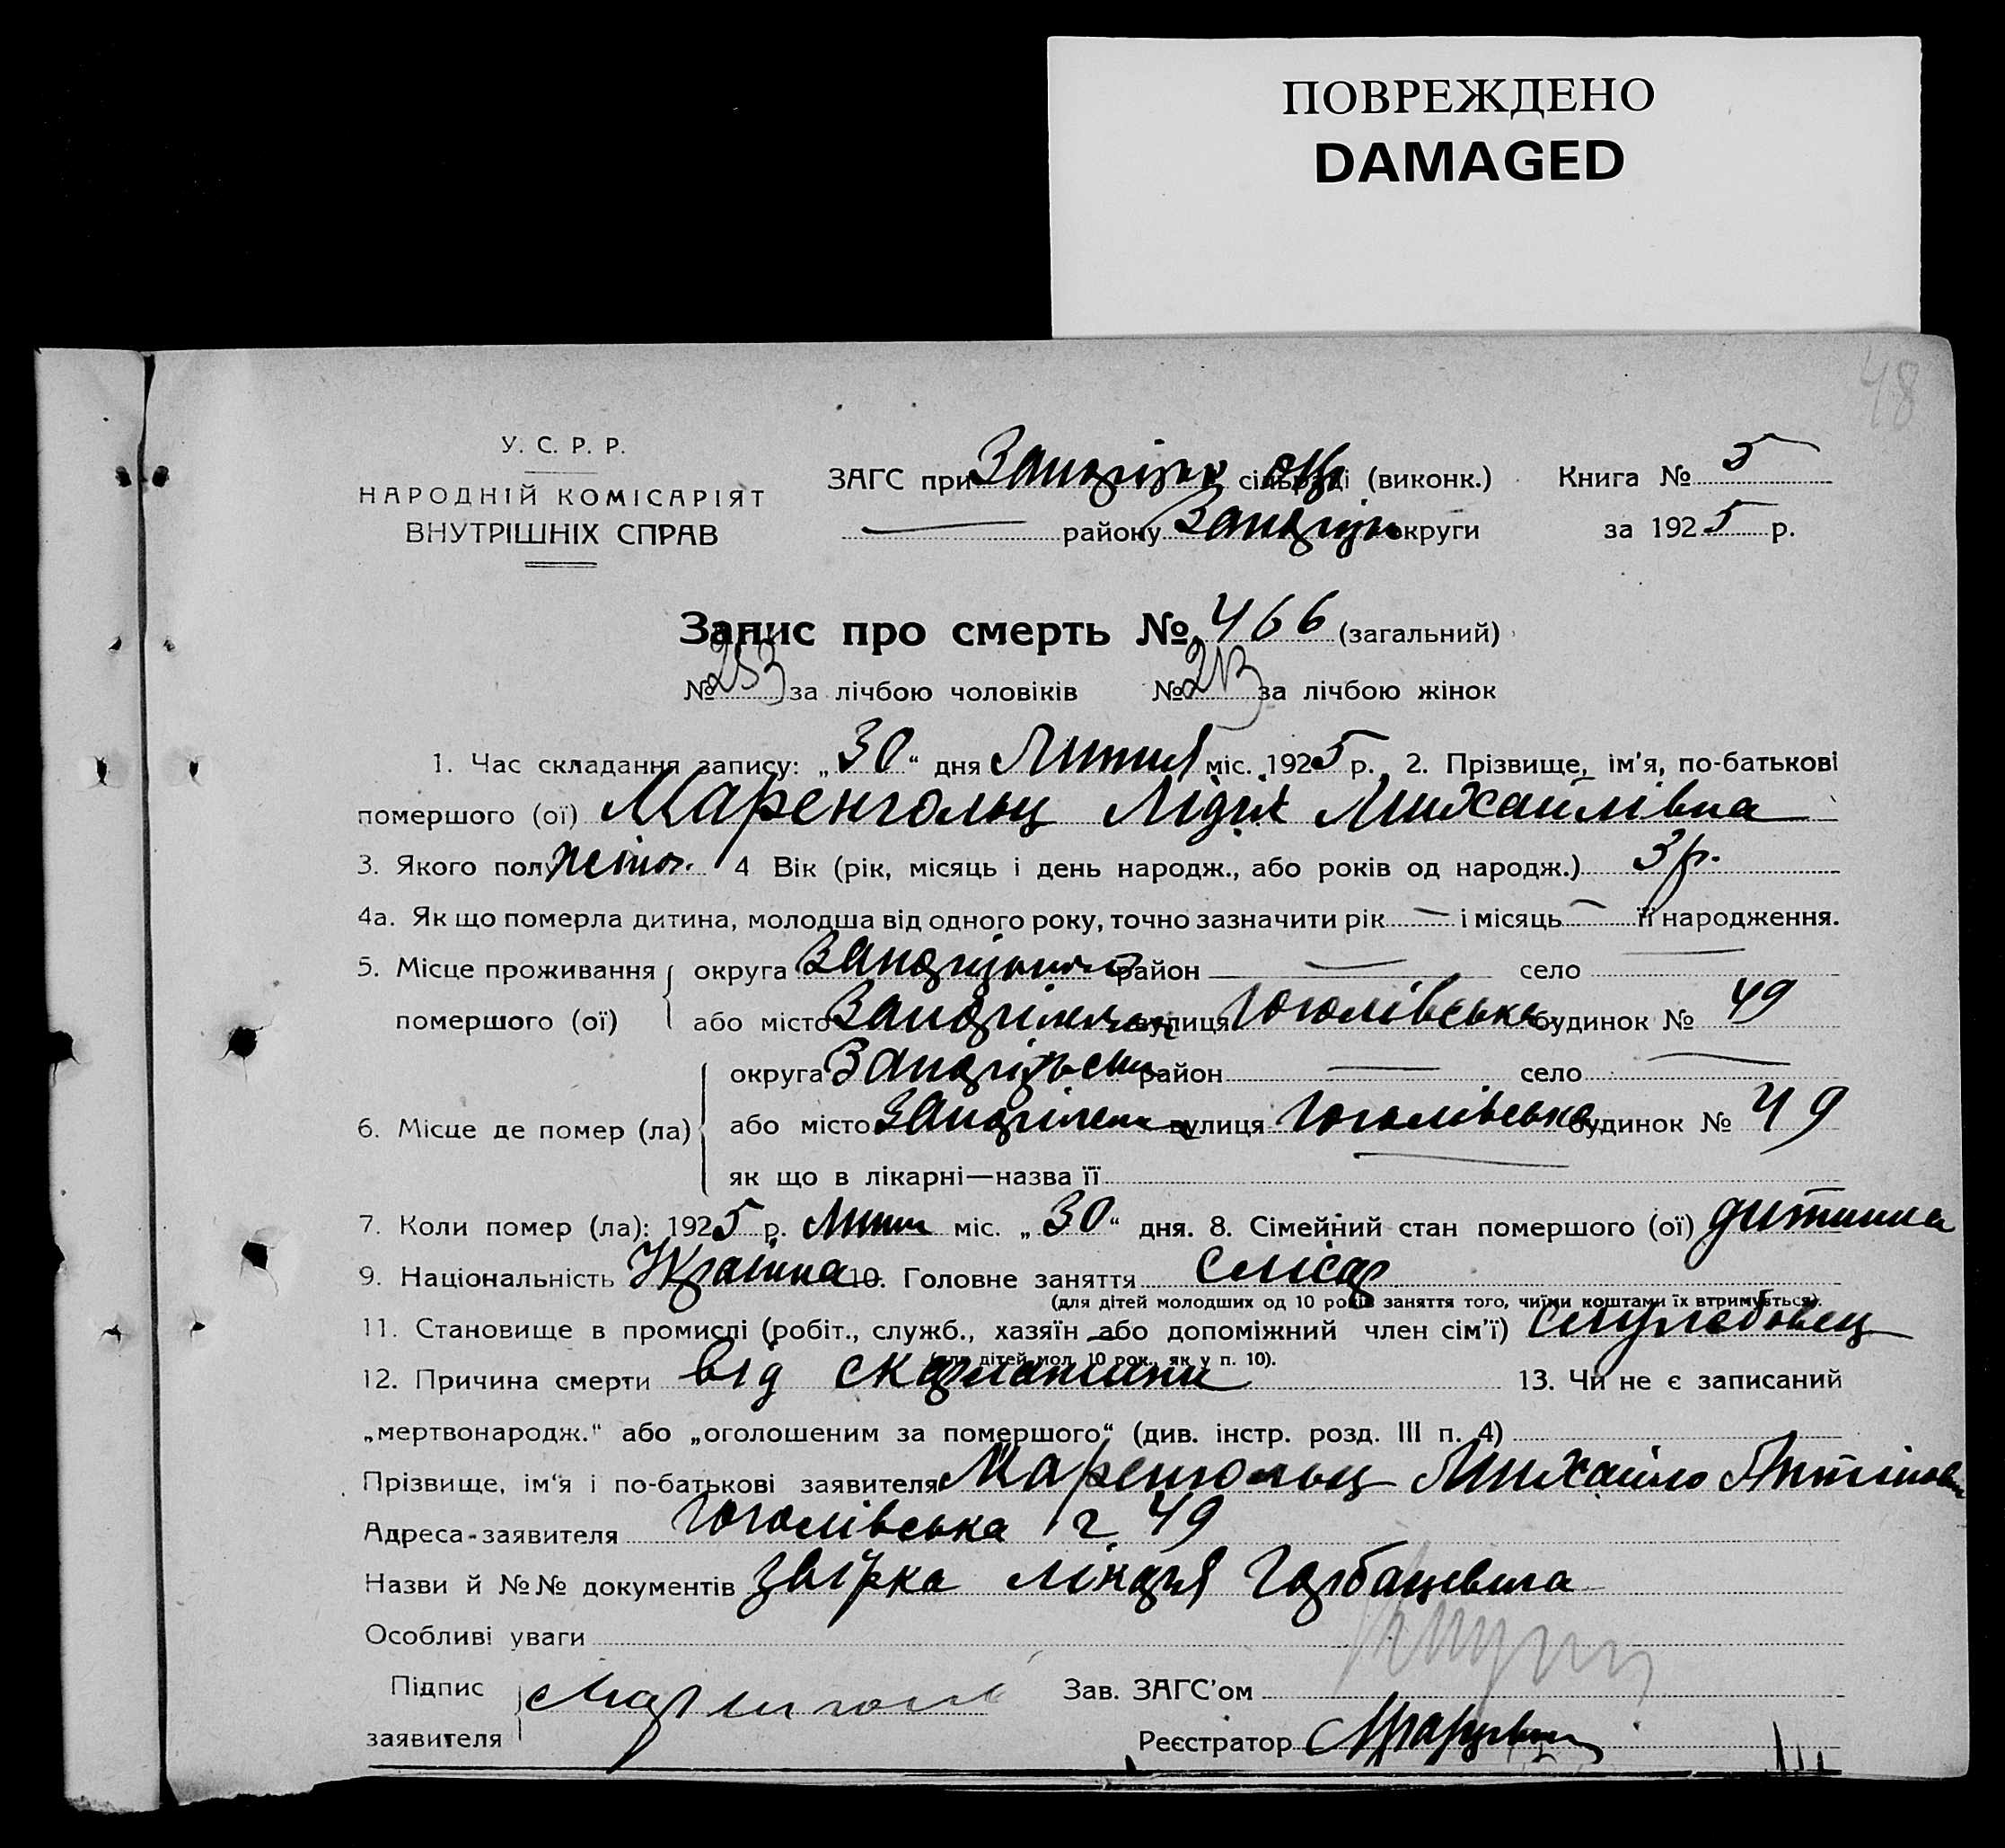 ПОВРЕЖДЕНО
DAMAGED
48
У. С. Р. Р.
НАРОДНІЙ КОМІСАРІЯТ
ВНУТРІШНІХ СПРАВ
ЗАГС при сільраді (виконк.) Книга № 5
району округи за 1925 р.
Запис про смерть № 466 (загальний)
№ 253 за лічбою чоловіків № 213 за лічбою жінок
1. Час складання запису: „30“ дня Липня міс. 1925 р. 2. Прізвище, ім'я, по-батькові
помершого (ої) Маренгольц Лідія Михайлівна
3. Якого полу жіноч. 4 Вік (рік, місяць і день народж., або років од народж.) 3 р.
4а. Як що померла дитина, молодша від одного року, точно зазначити рік — і місяць — її народження.
5. Місце проживання округа район — село —
помершого (ої) або місто вулиця Гоголівська будинок № 49
округа район — село —
6. Місце де помер (ла) або місто вулиця Гоголівська будинок № 49
як що в лікарні—назва її —
7. Коли помер (ла): 1925 р. Липня міс. „30“ дня. 8. Сімейний стан помершого (ої) дитина
9. Національність Українка 10. Головне заняття слюсар
(для дітей молодших од 10 років заняття того, чиїми коштами їх втримується).
11. Становище в промислі (робіт., служб., хазяїн або допоміжний член сім'ї) службовец
(для дітей мол. 10 рок., як у п. 10).
12. Причина смерти від скарлатини 13. Чи не є записаний
„мертвонародж.“ або „оголошеним за помершого“ (див. інстр. розд. III п. 4)
Прізвище, ім'я і по-батькові заявителя Маренгольц Михайло
Адреса-заявителя Гоголівська 49
Назви й №№ документів лікаря Горбацевича
Особливі уваги
Підпис Зав. ЗАГС'ом
заявителя Реєстратор